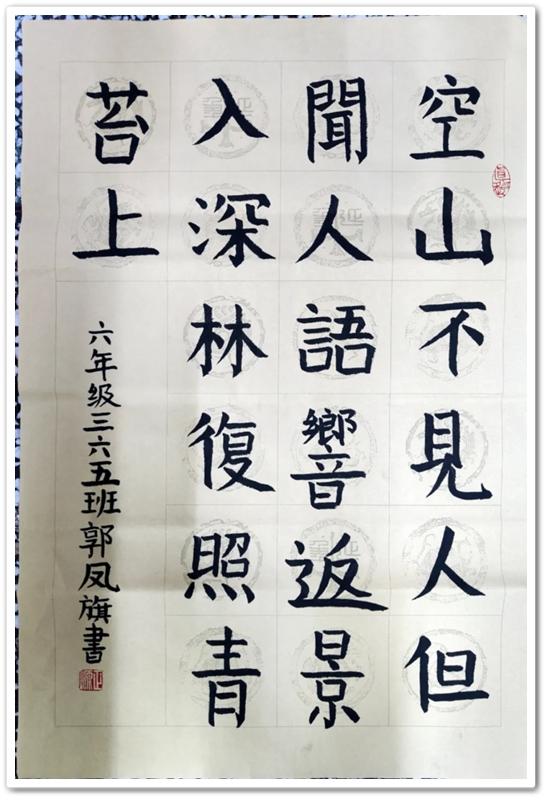 空山不見人但
聞人語響返景
入深林復照青
苔上
六年级三六五班郭凤旗書